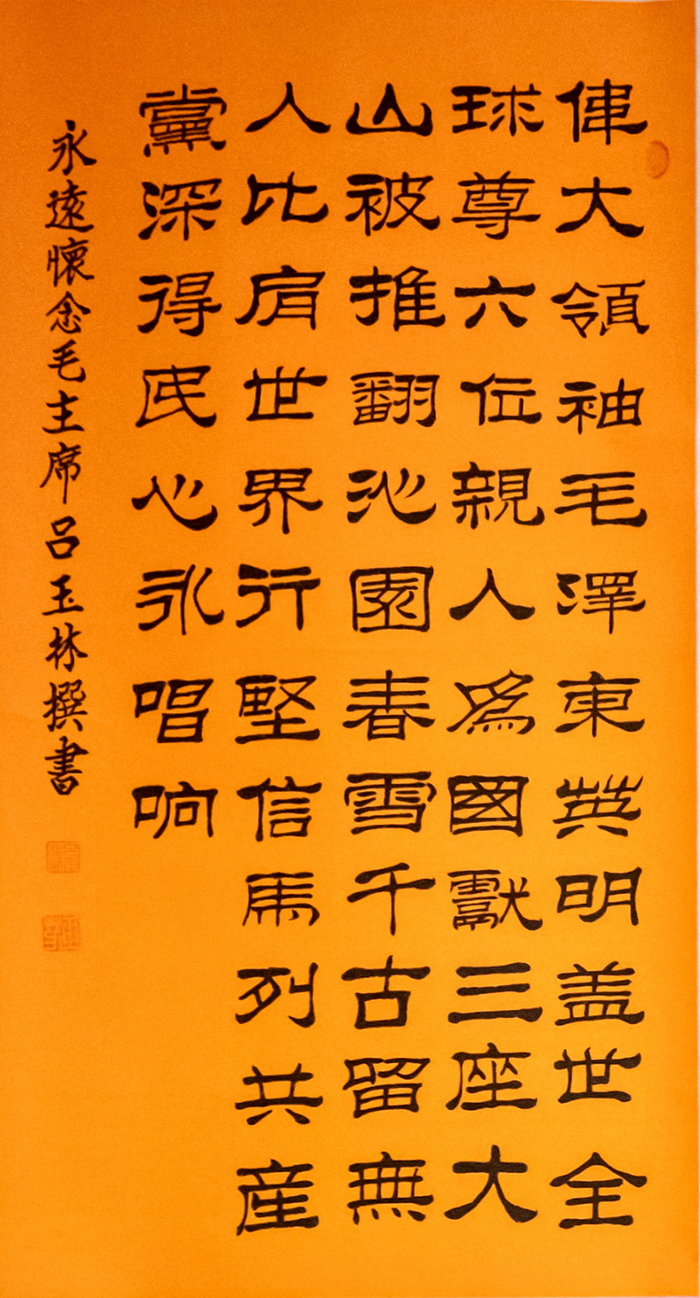 偉大領袖毛澤東英明盖世全
球尊六位親人為國獻三座大
山被推翻沁園春雪千古留無
人比肩世界行堅信馬列共産
黨深得民心永唱响
永遠懷念毛主席吕玉林撰書